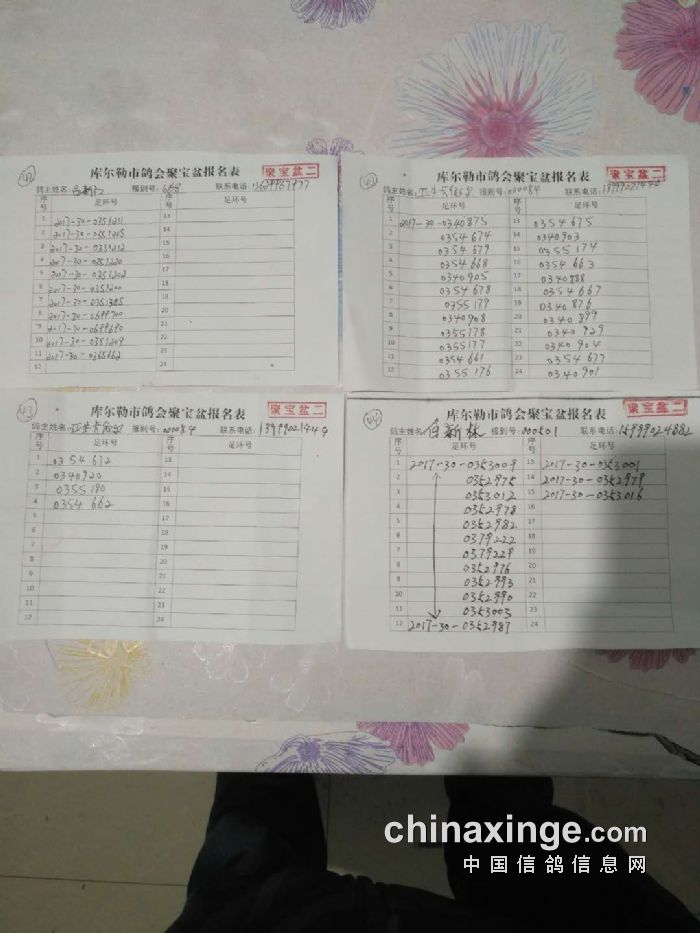 42
库尔勒市鸽会聚宝盆报名表
聚宝盆二
鸽主姓名:
报到号:
联系电话:
序号 足环号 序号 足环号
1 2017-30-0351211 13
2 2017-30-0351215 14
3 2017-30-0351212 15
4 2017-30-0351220 16
5 2017-30-0351202 17
6 2017-30-0351200 18
7 2017-30-0351385 19
8 2017-30-0699700 20
9 2017-30-0699690 21
10 2017-30-0351209 22
11 2017-30-0365662 23
12 24
库尔勒市鸽会聚宝盆报名表
聚宝盆二
鸽主姓名:
报到号: 000084
联系电话: 13999021444
序号 足环号 序号 足环号
1 2017-30-0340875 13 0354675
2 0354674 14 0340903
3 0354679 15 0355174
4 0354668 16 0354663
5 0340905 17 0340888
6 0354678 18 0354667
7 0355179 19 0340876
8 0340908 20 0340899
9 0355178 21 0340929
10 0355177 22 0340904
11 0354661 23 0354677
12 0355176 24 0340901
43
库尔勒市鸽会聚宝盆报名表
聚宝盆二
鸽主姓名:
报到号: 000084
联系电话: 13999021444
序号 足环号 序号 足环号
1 0354672 13
2 0340920 14
3 0355180 15
4 0354662 16
5 17
6 18
7 19
8 20
9 21
10 22
11 23
12 24
44
库尔勒市鸽会聚宝盆报名表
聚宝盆二
鸽主姓名: 白新林
报到号: 000501
联系电话: 15999024882
序号 足环号 序号 足环号
1 2017-30-0353009 13 2017-30-0353001
2 0352975 14 2017-30-0352979
3 0353012 15 2017-30-0353016
4 0352978 16
5 0352982 17
6 0379222 18
7 0379229 19
8 0352976 20
9 0352993 21
10 0352990 22
11 0353003 23
12 2017-30-0352987 24
chinaxinge.com
中国信鸽信息网